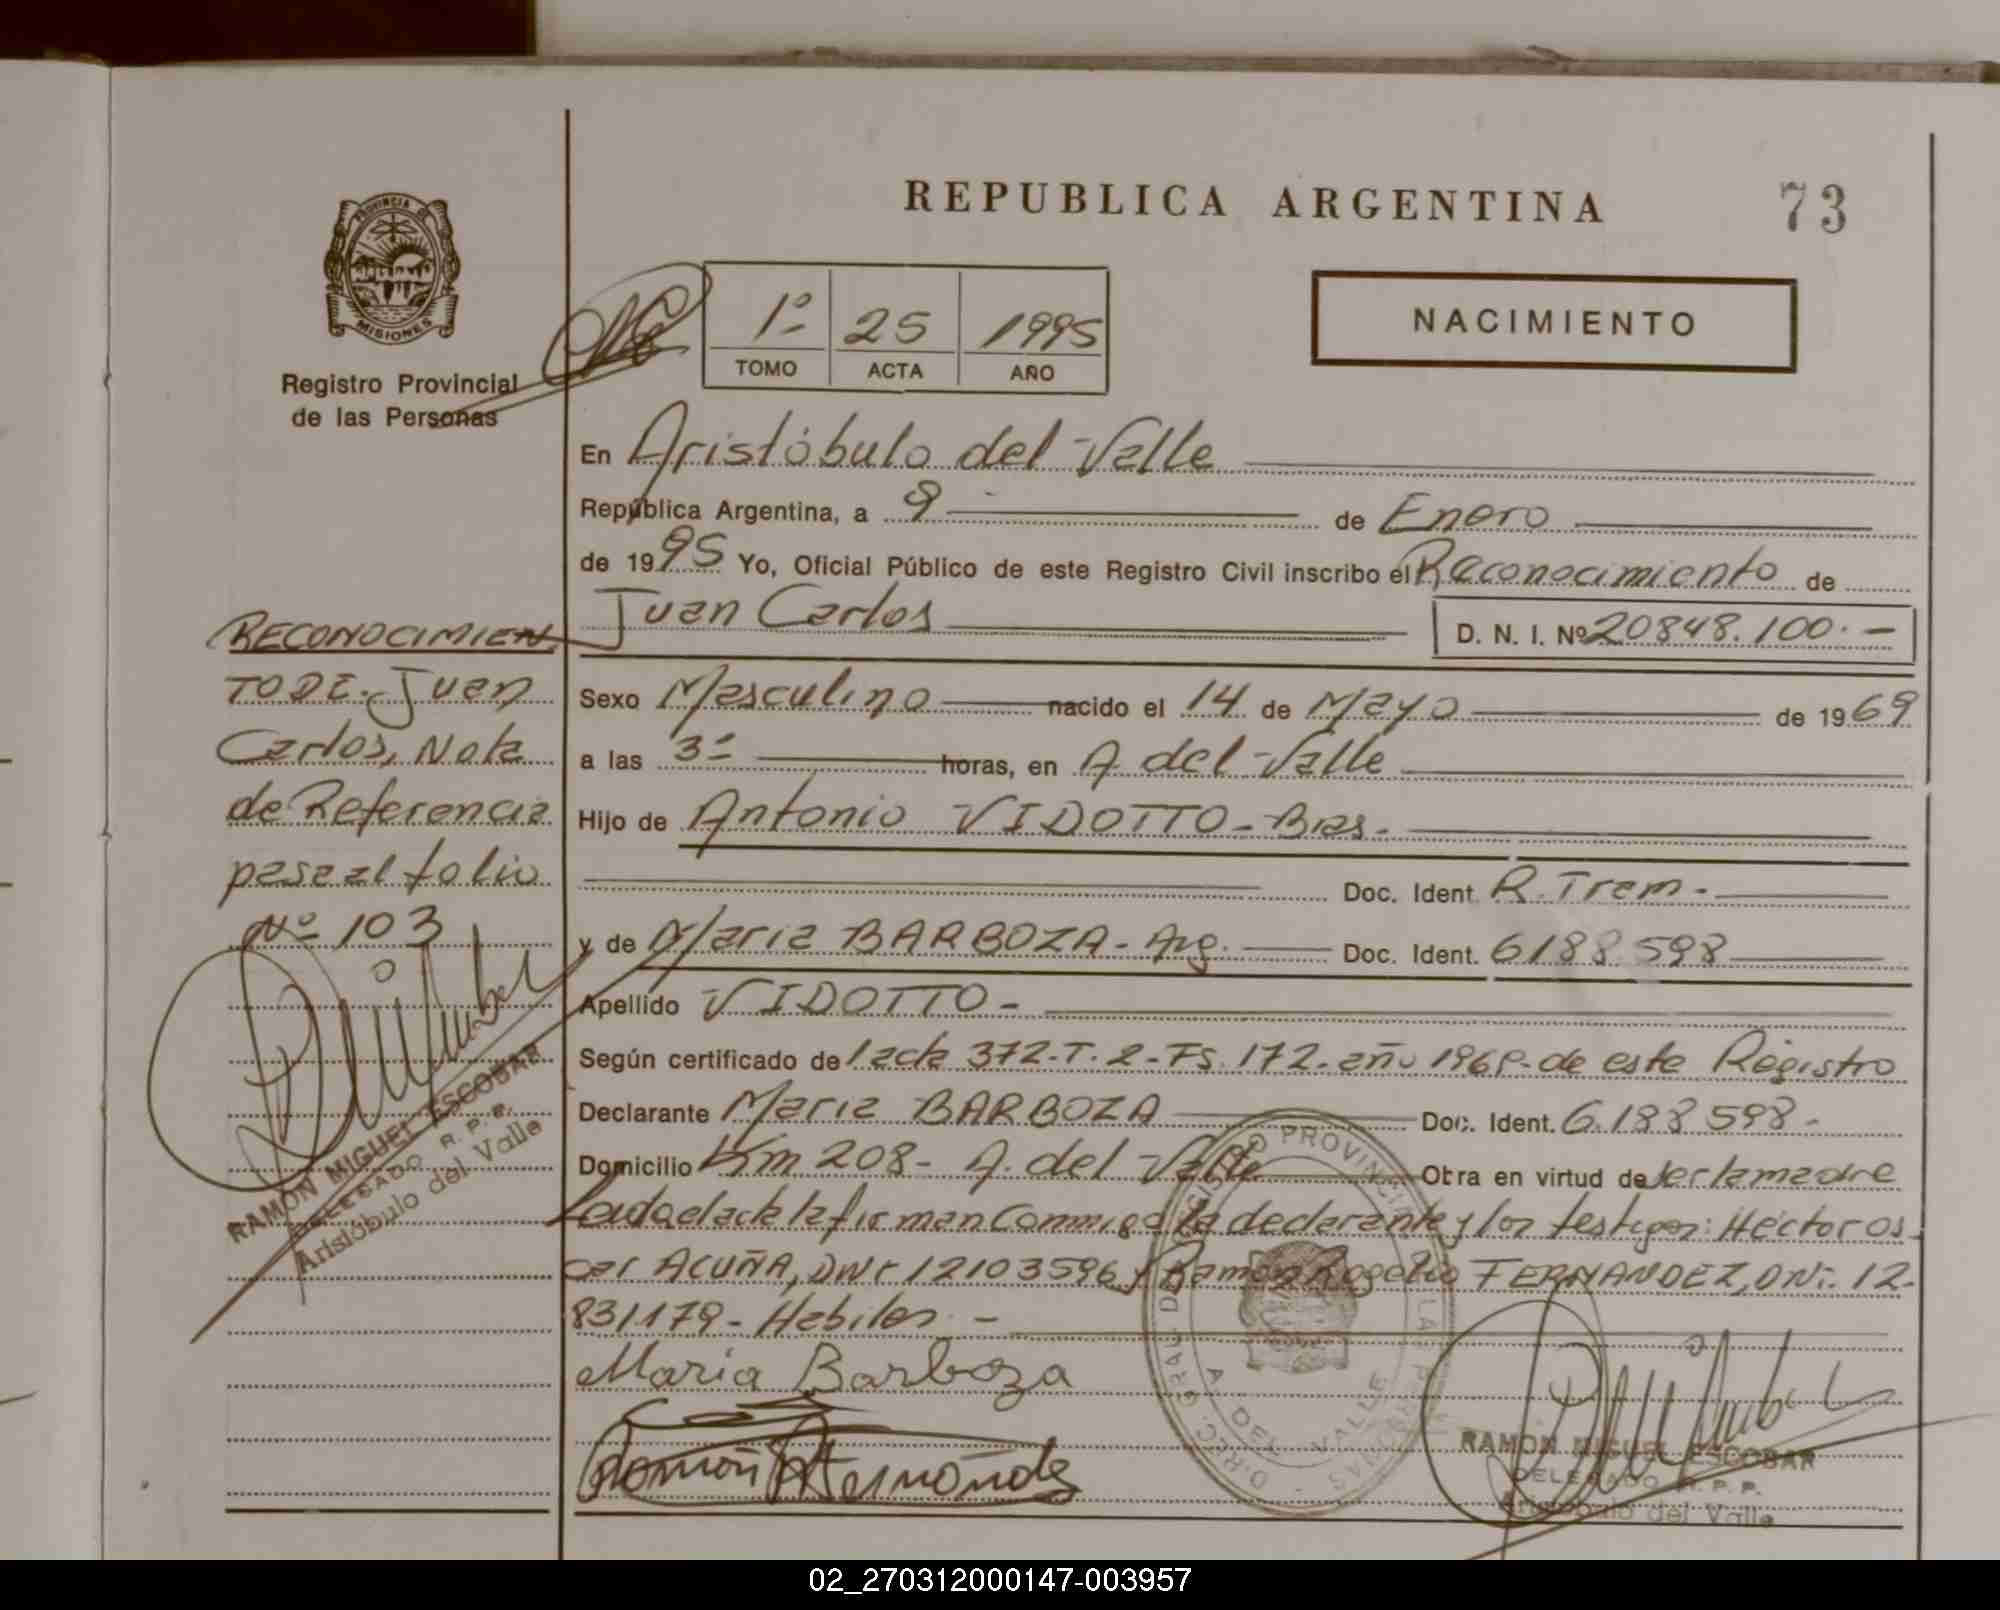 REPUBLICA ARGENTINA
73
PROVINCIA DE
MISIONES
Registro Provincial
de las Personas
1º 25 1995
TOMO ACTA AÑO
NACIMIENTO
En Aristóbulo del Valle
República Argentina, a 9 de Enero
de 1995 Yo, Oficial Público de este Registro Civil inscribo el Reconocimiento de
Juan Carlos D. N. I. Nº 20848.100.-
Sexo Masculino nacido el 14 de Mayo de 1969
a las 3 horas, en A. del Valle
Hijo de Antonio VIDOTTO - Bras.
Doc. Ident. R. Tram.
y de Maria BARBOZA - Arg. Doc. Ident. 6188.598
Apellido VIDOTTO -
Según certificado de acta 372-T.2-Fs.172-año 1969-de este Registro
Declarante Maria BARBOZA Doc. Ident. 6.188 598-
Domicilio Km 208 - A. del Valle Otra en virtud de ser la madre
Leída el acta la firman conmigo la declarante y los testigos: Héctor Os-
car ACUÑA, DNI 12103596 y Ramón Rogelio FERNANDEZ, DNI. 12-
831179 - Hábiles -
Maria Barboza
RECONOCIMIEN
TO DE. Juan
Carlos, Nota
de Referencia
pasa al folio
Nº 103
RAMON MIGUEL ESCOBAR
DELEGADO R. P. P.
Aristóbulo del Valle
A. DEL VALLE
RAMON MIGUEL ESCOBAR
DELEGADO R. P. P.
Aristóbulo del Valle
02_270312000147-003957